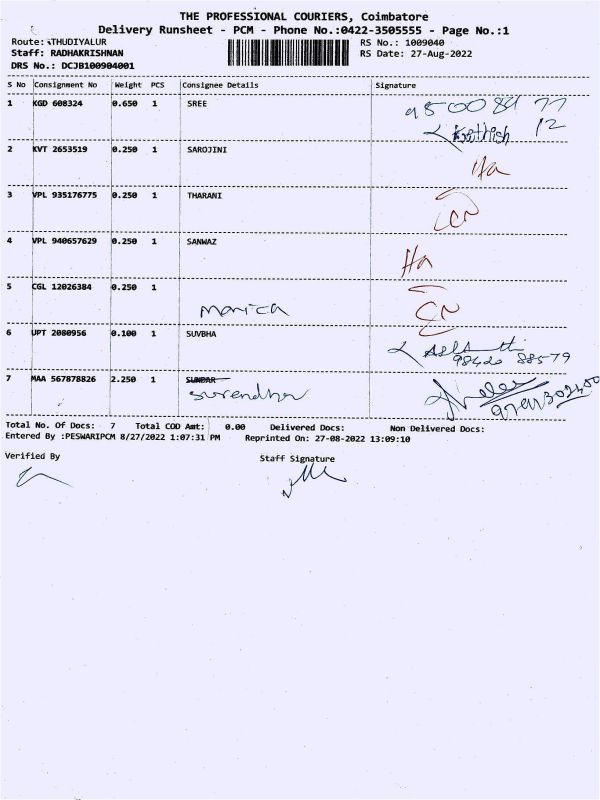 THE PROFESSIONAL COURIERS, Coimbatore
Delivery Runsheet - PCM - Phone No.:0422-3505555 - Page No.:1
Route: THUDIYALUR RS No.: 1009040
Staff: RADHAKRISHNAN RS Date: 27-Aug-2022
DRS No.: DCJB100904001
S No Consignment No Weight PCS Consignee Details Signature
1 KGD 608324 0.650 1 SREE
2 KVT 2653519 0.250 1 SAROJINI
3 VPL 935176775 0.250 1 THARANI
4 VPL 940657629 0.250 1 SANWAZ
5 CGL 12026384 0.250 1
Monica
6 UPT 2080956 0.100 1 SUVBHA
98420 88579
7 MAA 567878826 2.250 1 SUNDAR
Surendhar
Total No. Of Docs: 7 Total COD Amt: 0.00 Delivered Docs: Non Delivered Docs:
Entered By :PESWARIPCM 8/27/2022 1:07:31 PM Reprinted On: 27-08-2022 13:09:10
Verified By Staff Signature